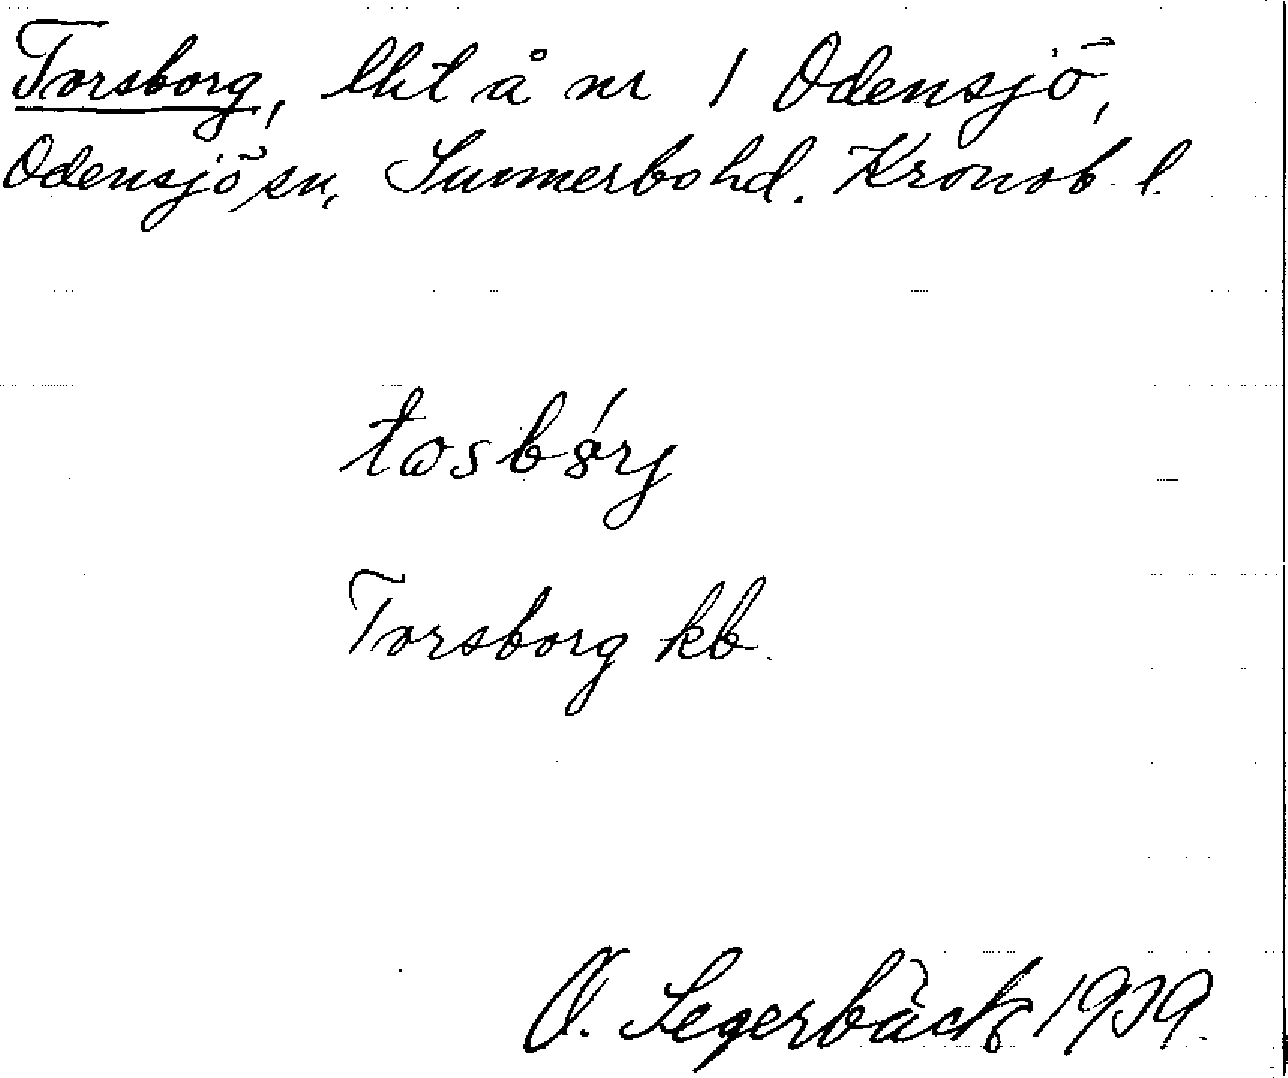 Torsborg, lht å nr 1 Odensjö,
Odensjö sn, Sunnerbo hd. Kronob. l.
tosbórj
Torsborg kb.
O. Segerbäck 1939.